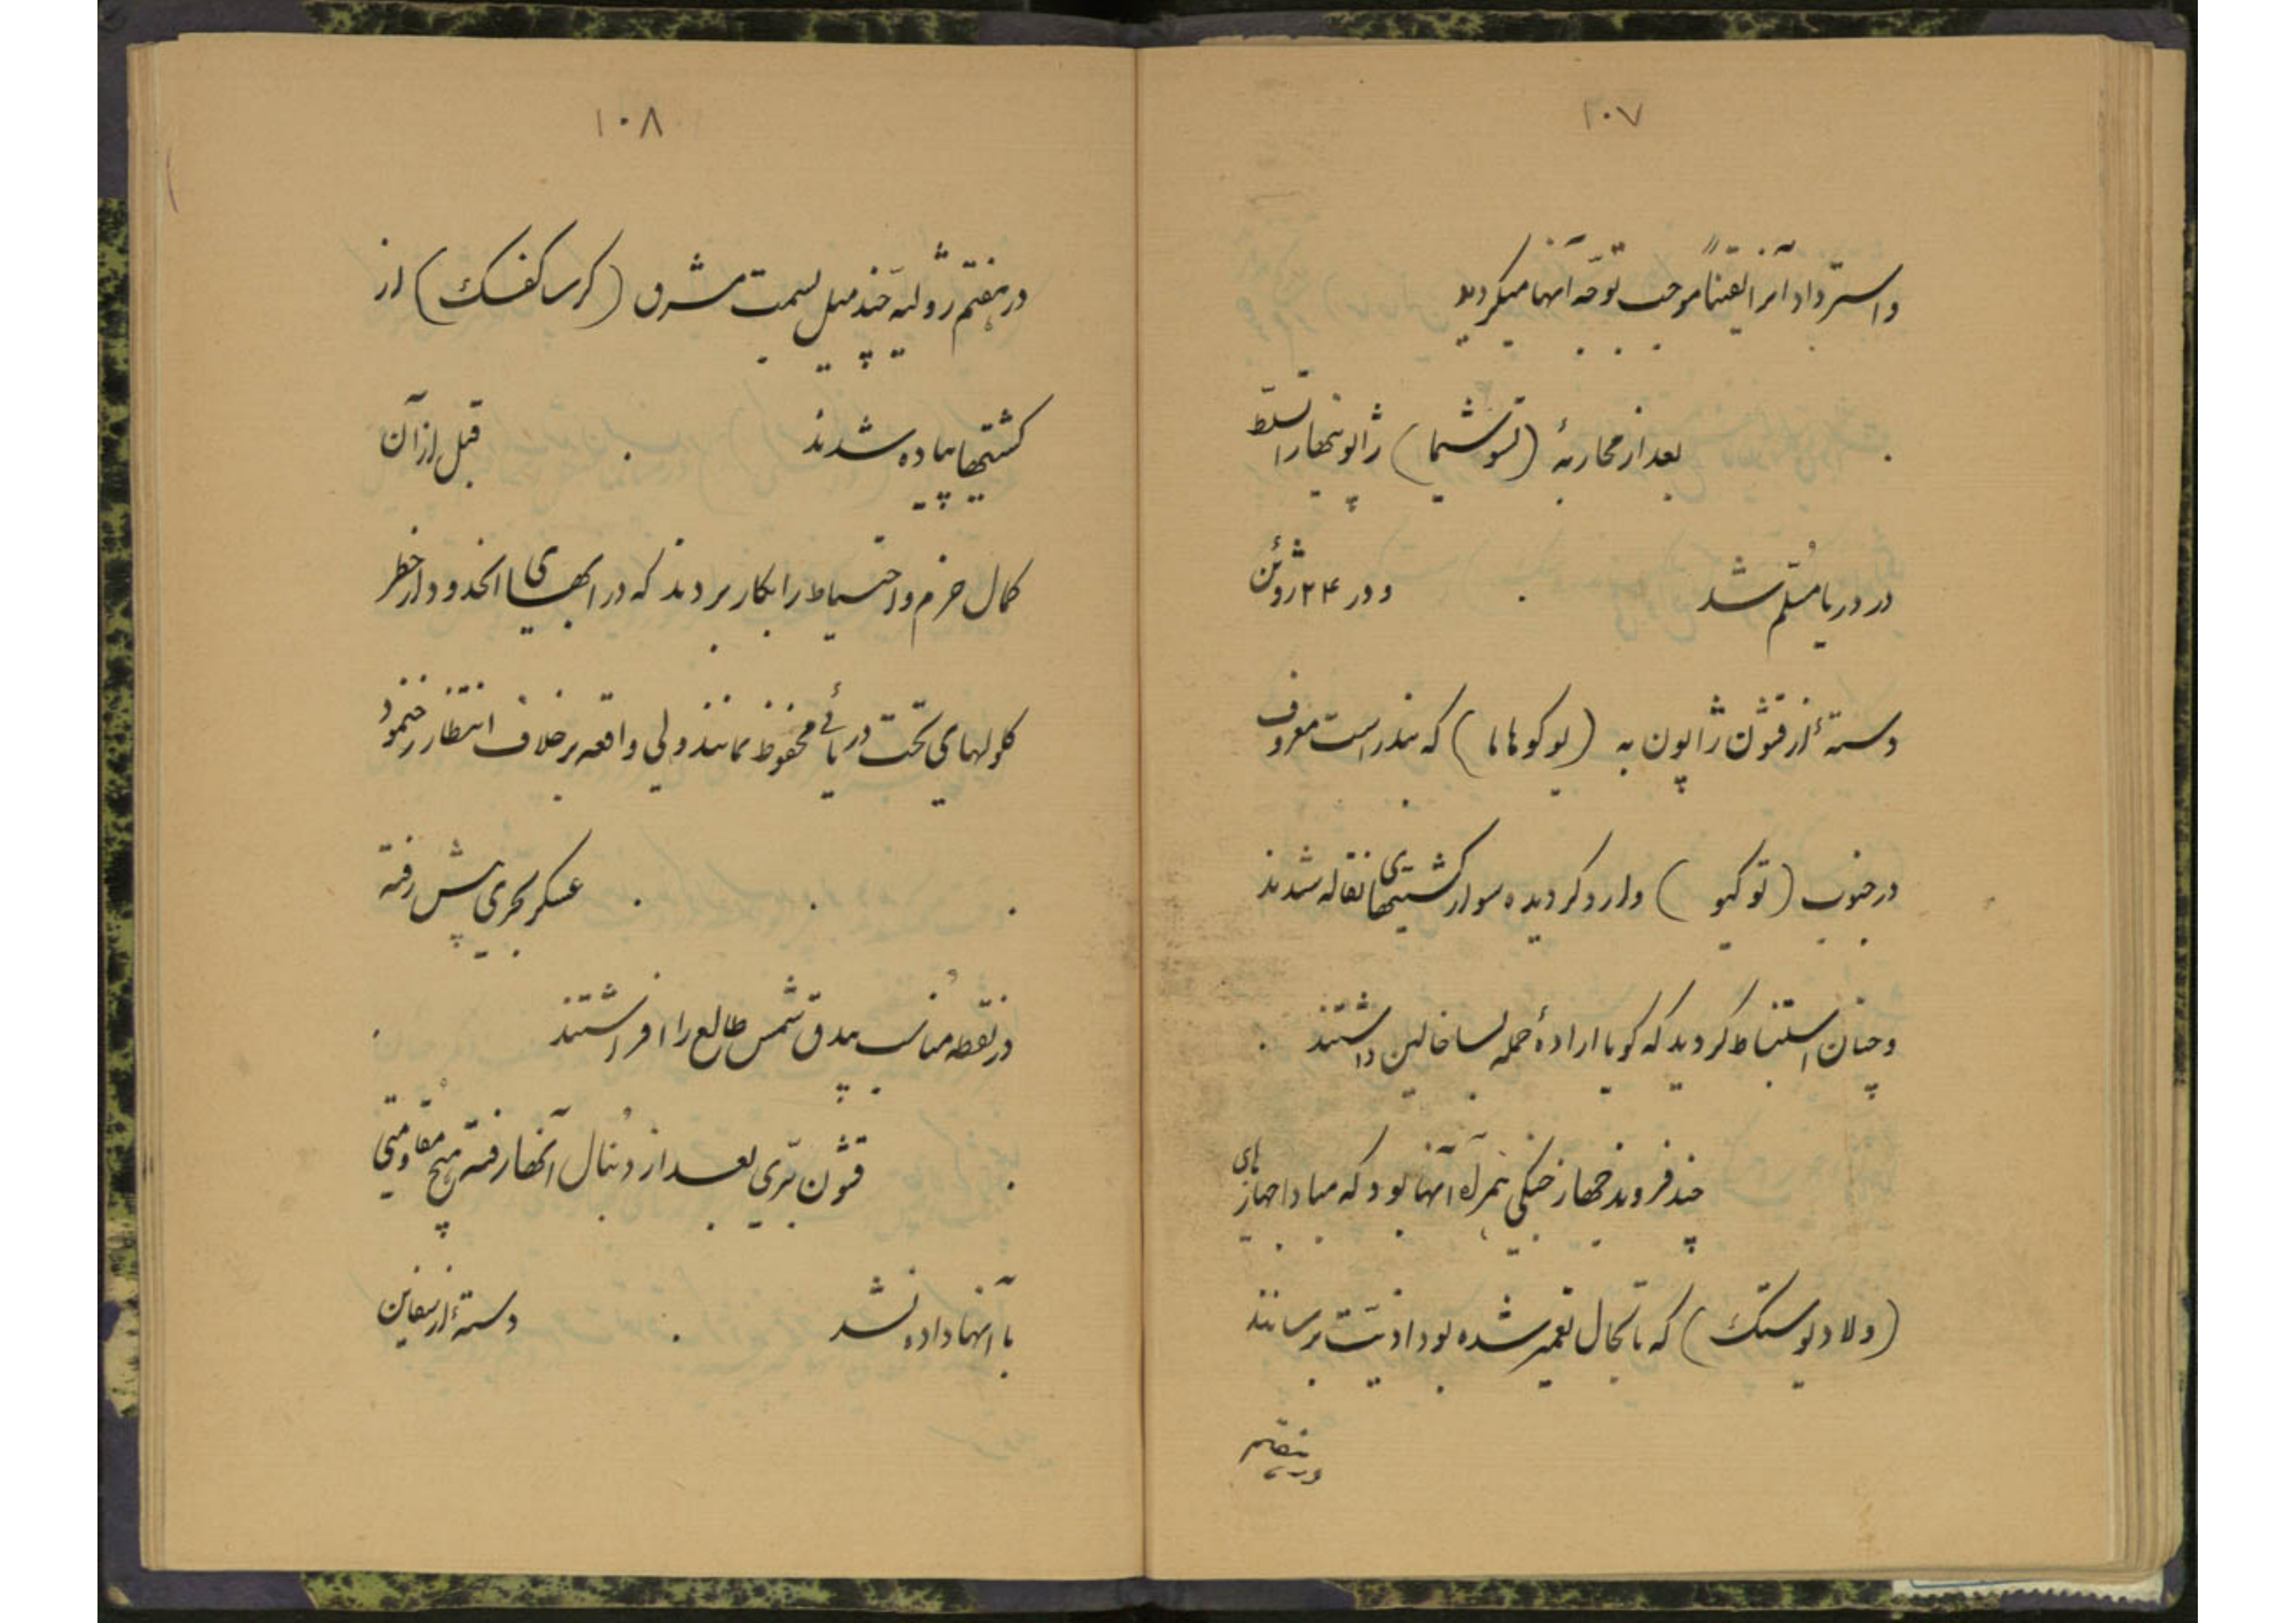 ۱۰۷
و استرداد آنرا یقیناً موجب توجّه آنها میگردید
. بعد از محاربهٔ (تسوشیما) ژاپونیهارا تسلّط
در دریا مُسلّم شد . و در ۲۴ ژوئن
دستهٔ از قشون ژاپون به (یوکوهاما) که بندر است معروف
در جنوب (توکیو) وارد گردیده سوار کشتیهای نقاله شدند
و چنان استنباط گردید که گویا ارادهٔ حمله بساخالین داشتند .
چند فروند جهاز جنگی همراه آنها بود که مبادا جهازهای
(ولادیوستک) که تابحال تعمیر شده بود اذیّت برسانند
در هفتم
۱۰۸
در هفتم ژولیه چند میل بسمت مشرق (کرساکفسک) از
کشتیها پیاده شدند . قبل از آن
کمال حزم و احتیاط را بکار بردند که در ابهای انحدود از خطر
گلولهای تحت دریائی محفوظ بمانند ولی واقعه برخلاف انتظار رخ ننمود
. . . عسکر بحری پیش رفته
در نقطه مُناسب بیدق شمس طالع را افراشتند .
. قشون بَرّی بعد از دُنبال آنها رفته هیچ مُقاومتی
با آنها داده نشد . دستهٔ از سفاین